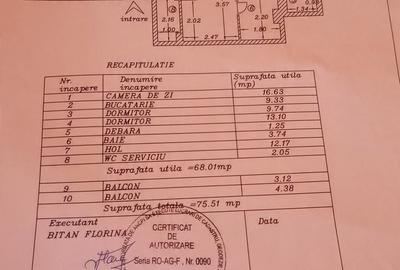 0.98
3.57
1.34
2.16
2.02
2.20
intrare
1.00
2.47
1.80
RECAPITULATIE
Nr. incapere Denumire incapere Suprafata utila (mp)
1 CAMERA DE ZI 16.63
2 BUCATARIE 9.33
3 DORMITOR 9.74
4 DORMITOR 13.10
5 DEBARA 1.25
6 BAIE 3.74
7 HOL 12.17
8 WC SERVICIU 2.05
Suprafata utila =68.01mp
9 BALCON 3.12
10 BALCON 4.38
Suprafata totala =75.51 mp
Executant Data
BITAN FLORINA
CERTIFICAT
DE
AUTORIZARE
Seria RO-AG-F , Nr. 0090